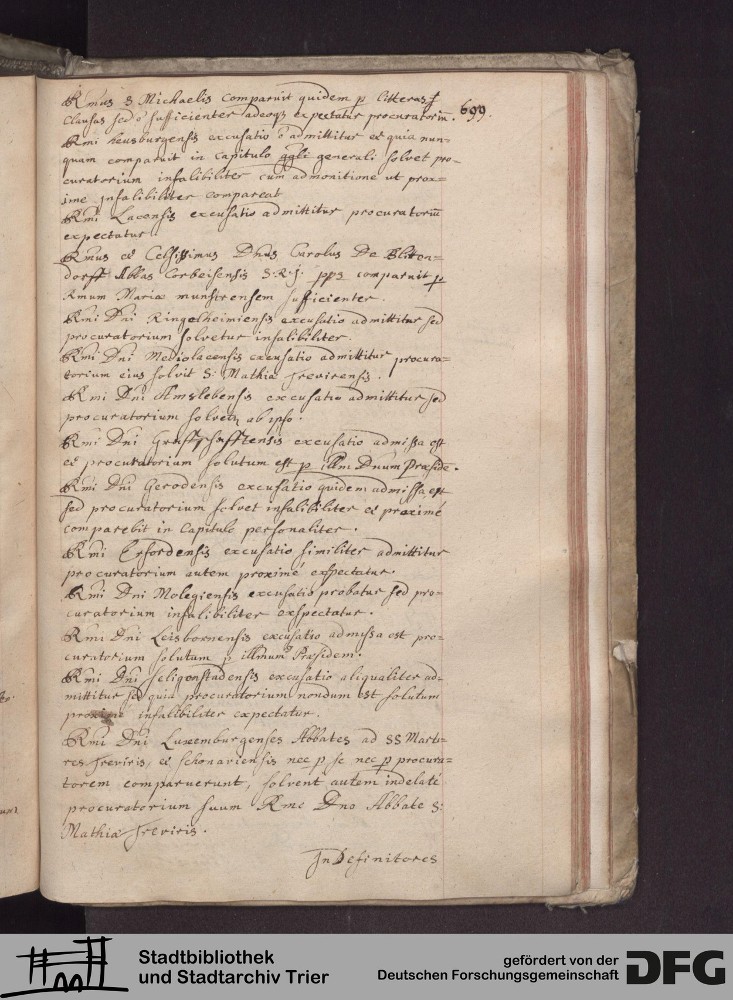 Rmus S Michaelis comparuit quidem p litteras
clausas sed ō sufficienter adeoq; expectatur procuratoriū. 699.
Rmi heusburgensis excusatio ō admittitur et quia nun-
quam comparuit in capitulo generali solvet pro-
curatorium infalibiliter cum admonitione ut prox-
ime infalibiliter compareat
Rmi Lacensis excusatio admittitur procuratoriū
expectatur
Rmus et Celsissimus Dnus Carolus De Bliton=
dorff Abbas Corbeiensis S.R.J. pps comparuit p
Rmum Mariæ munstrensem sufficienter.
Rmi Dni Ringelheimiensis excusatio admittitur sed
procuratorium solvetur infalibiliter.
Rmi Dni Mediolacensis excusatio admittitur procura=
torium eius solvit S: Mathiæ Trevirensis.
Rmi Dni Amslebensis excusatio admittitur sed
procuratorium solvetur ab ipso.
Rmi Dni Graffschafftensis excusatio admissa est
et procuratorium solutum est p illm Dnum Præside.
Rmi Dni Gerodensis excusatio quidem admissa est
sed procuratorium solvet infalibiliter et proximé
comparebit in Capitulo personaliter.
Rmi Erfordensis excusatio similiter admittitur
procuratorium autem proximé exspectatur.
Rmi Dni Molegiensis excusatio probatur sed pro=
curatorium infalibiliter exspectatur.
Rmi Dni Leisbornensis excusatio admissa est pro=
curatorium solutum p illmum Præsidem.
Rmi Dni Seligenstadensis excusatio aliqualiter ad=
mittitur sed quia procuratorium nondum est solutum
proxime infalibiliter expectatur.
Rmi Dni Luxemburgenses Abbates ad SS Marty=
res Treviris, et Schonariensis nec p se nec p procura=
torem comparuerunt, solvent autem indelaté
procuratorium suum Rmo Dno Abbate S:
Mathiæ Treviris.
In Definitores
Stadtbibliothek
und Stadtarchiv Trier
gefördert von der
Deutschen Forschungsgemeinschaft
DFG